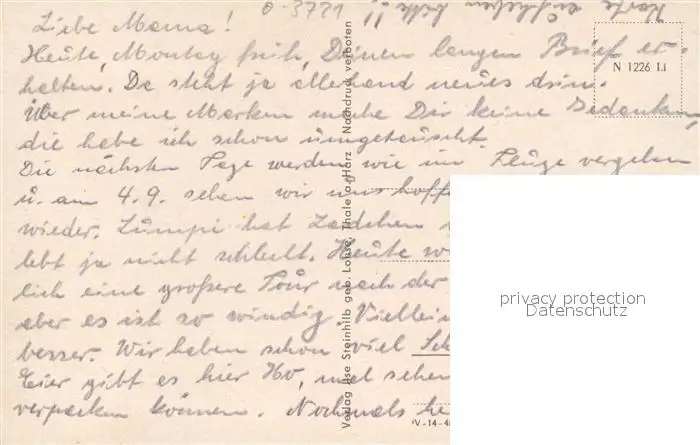 0-3721
Karte aufheben bitte!!
Liebe Mama!
Heute, Montag früh, Deinen langen Brief er-
halten. Da steht ja allerhand neues drin.
Über meine Marken mache Dir keine Gedanken,
die habe ich schon umgetauscht.
Die nächsten Tage werden wie im Fluge vergehen
u. am 4.9. sehen wir uns
wieder. Lumpi hat
lebt ja nicht schlecht. Heute
lich eine größere Tour nach der
aber es ist so windig.
besser. Wir haben schon viel
Eier gibt es hier HO, mal sehen
verpacken können. Nochmals
N 1226 Li
Verlag Ilse Steinhilb geb. Lohse, Thale a. Harz Nachdruck verboten
IV-14-4
privacy protection
Datenschutz